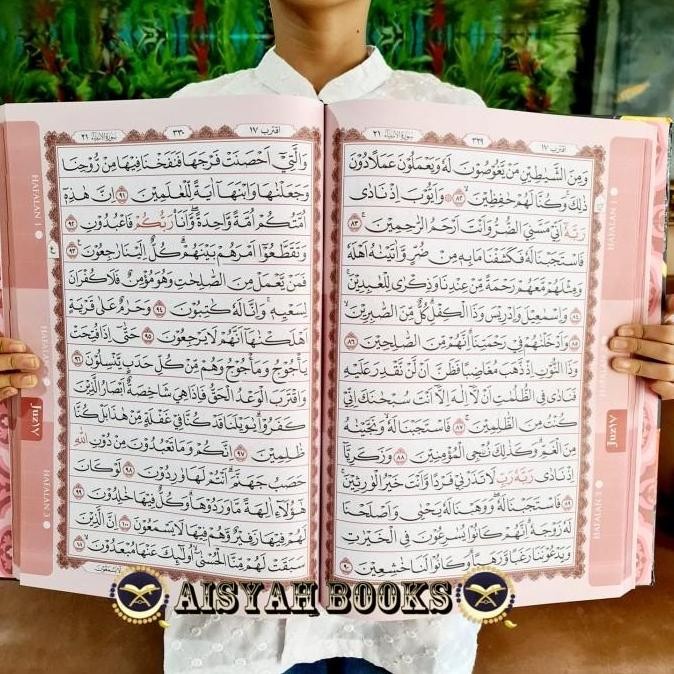 اقترب ١٧
٣٢٩
سورة الانبياء ٢١
وَمِنَ الشَّيٰطِيْنِ مَنْ يَّغُوْصُوْنَ لَهٗ وَيَعْمَلُوْنَ عَمَلًا دُوْنَ
ذٰلِكَۚ وَكُنَّا لَهُمْ حٰفِظِيْنَۙ ٨٢ ۞ وَاَيُّوْبَ اِذْ نَادٰى
رَبَّهٗٓ اَنِّيْ مَسَّنِيَ الضُّرُّ وَاَنْتَ اَرْحَمُ الرّٰحِمِيْنَۚ ٨٣
فَاسْتَجَبْنَا لَهٗ فَكَشَفْنَا مَا بِهٖ مِنْ ضُرٍّ وَّاٰتَيْنٰهُ اَهْلَهٗ
وَمِثْلَهُمْ مَّعَهُمْ رَحْمَةً مِّنْ عِنْدِنَا وَذِكْرٰى لِلْعٰبِدِيْنَۚ
٨٤ وَاِسْمٰعِيْلَ وَاِدْرِيْسَ وَذَا الْكِفْلِۗ كُلٌّ مِّنَ الصّٰبِرِيْنَۙ
٨٥ وَاَدْخَلْنٰهُمْ فِيْ رَحْمَتِنَاۗ اِنَّهُمْ مِّنَ الصّٰلِحِيْنَ ٨٦
وَذَا النُّوْنِ اِذْ ذَّهَبَ مُغَاضِبًا فَظَنَّ اَنْ لَّنْ نَّقْدِرَ عَلَيْهِ
فَنَادٰى فِى الظُّلُمٰتِ اَنْ لَّآ اِلٰهَ اِلَّآ اَنْتَ سُبْحٰنَكَ اِنِّيْ
كُنْتُ مِنَ الظّٰلِمِيْنَ ٨٧ فَاسْتَجَبْنَا لَهٗۙ وَنَجَّيْنٰهُ
مِنَ الْغَمِّۗ وَكَذٰلِكَ نُـْۨجِى الْمُؤْمِنِيْنَ ٨٨ وَزَكَرِيَّآ
اِذْ نَادٰى رَبَّهٗ رَبِّ لَا تَذَرْنِيْ فَرْدًا وَّاَنْتَ خَيْرُ الْوٰرِثِيْنَۚ
٨٩ فَاسْتَجَبْنَا لَهٗۖ وَوَهَبْنَا لَهٗ يَحْيٰى وَاَصْلَحْنَا
لَهٗ زَوْجَهٗۗ اِنَّهُمْ كَانُوْا يُسٰرِعُوْنَ فِى الْخَيْرٰتِ
وَيَدْعُوْنَنَا رَغَبًا وَّرَهَبًاۗ وَكَانُوْا لَنَا خٰشِعِيْنَ ٩٠
HAFALAN 1
Juz ١٧
HAFALAN 3
اقترب ١٧
٣٣٠
سورة الانبياء ٢١
وَالَّتِيْٓ اَحْصَنَتْ فَرْجَهَا فَنَفَخْنَا فِيْهَا مِنْ رُّوْحِنَا
وَجَعَلْنٰهَا وَابْنَهَآ اٰيَةً لِّلْعٰلَمِيْنَ ٩١ اِنَّ هٰذِهٖٓ
اُمَّتُكُمْ اُمَّةً وَّاحِدَةًۖ وَّاَنَا۠ رَبُّكُمْ فَاعْبُدُوْنِ ٩٢
وَتَقَطَّعُوْٓا اَمْرَهُمْ بَيْنَهُمْۗ كُلٌّ اِلَيْنَا رٰجِعُوْنَ ٩٣
فَمَنْ يَّعْمَلْ مِنَ الصّٰلِحٰتِ وَهُوَ مُؤْمِنٌ فَلَا كُفْرَانَ
لِسَعْيِهٖۚ وَاِنَّا لَهٗ كٰتِبُوْنَ ٩٤ وَحَرٰمٌ عَلٰى قَرْيَةٍ
اَهْلَكْنٰهَآ اَنَّهُمْ لَا يَرْجِعُوْنَ ٩٥ حَتّٰىٓ اِذَا فُتِحَتْ
يَأْجُوْجُ وَمَأْجُوْجُ وَهُمْ مِّنْ كُلِّ حَدَبٍ يَّنْسِلُوْنَ ٩٦
وَاقْتَرَبَ الْوَعْدُ الْحَقُّ فَاِذَا هِيَ شَاخِصَةٌ اَبْصَارُ الَّذِيْنَ
كَفَرُوْاۗ يٰوَيْلَنَا قَدْ كُنَّا فِيْ غَفْلَةٍ مِّنْ هٰذَا بَلْ كُنَّا
ظٰلِمِيْنَ ٩٧ اِنَّكُمْ وَمَا تَعْبُدُوْنَ مِنْ دُوْنِ اللّٰهِ
حَصَبُ جَهَنَّمَۗ اَنْتُمْ لَهَا وٰرِدُوْنَ ٩٨ لَوْ كَانَ
هٰٓؤُلَاۤءِ اٰلِهَةً مَّا وَرَدُوْهَاۗ وَكُلٌّ فِيْهَا خٰلِدُوْنَ ٩٩
لَهُمْ فِيْهَا زَفِيْرٌ وَّهُمْ فِيْهَا لَا يَسْمَعُوْنَ ١٠٠ اِنَّ الَّذِيْنَ
سَبَقَتْ لَهُمْ مِّنَّا الْحُسْنٰىٓۙ اُولٰۤىِٕكَ عَنْهَا مُبْعَدُوْنَۙ ١٠١
HAFALAN 1
Juz ١٧
HAFALAN 3
AISYAH BOOKS